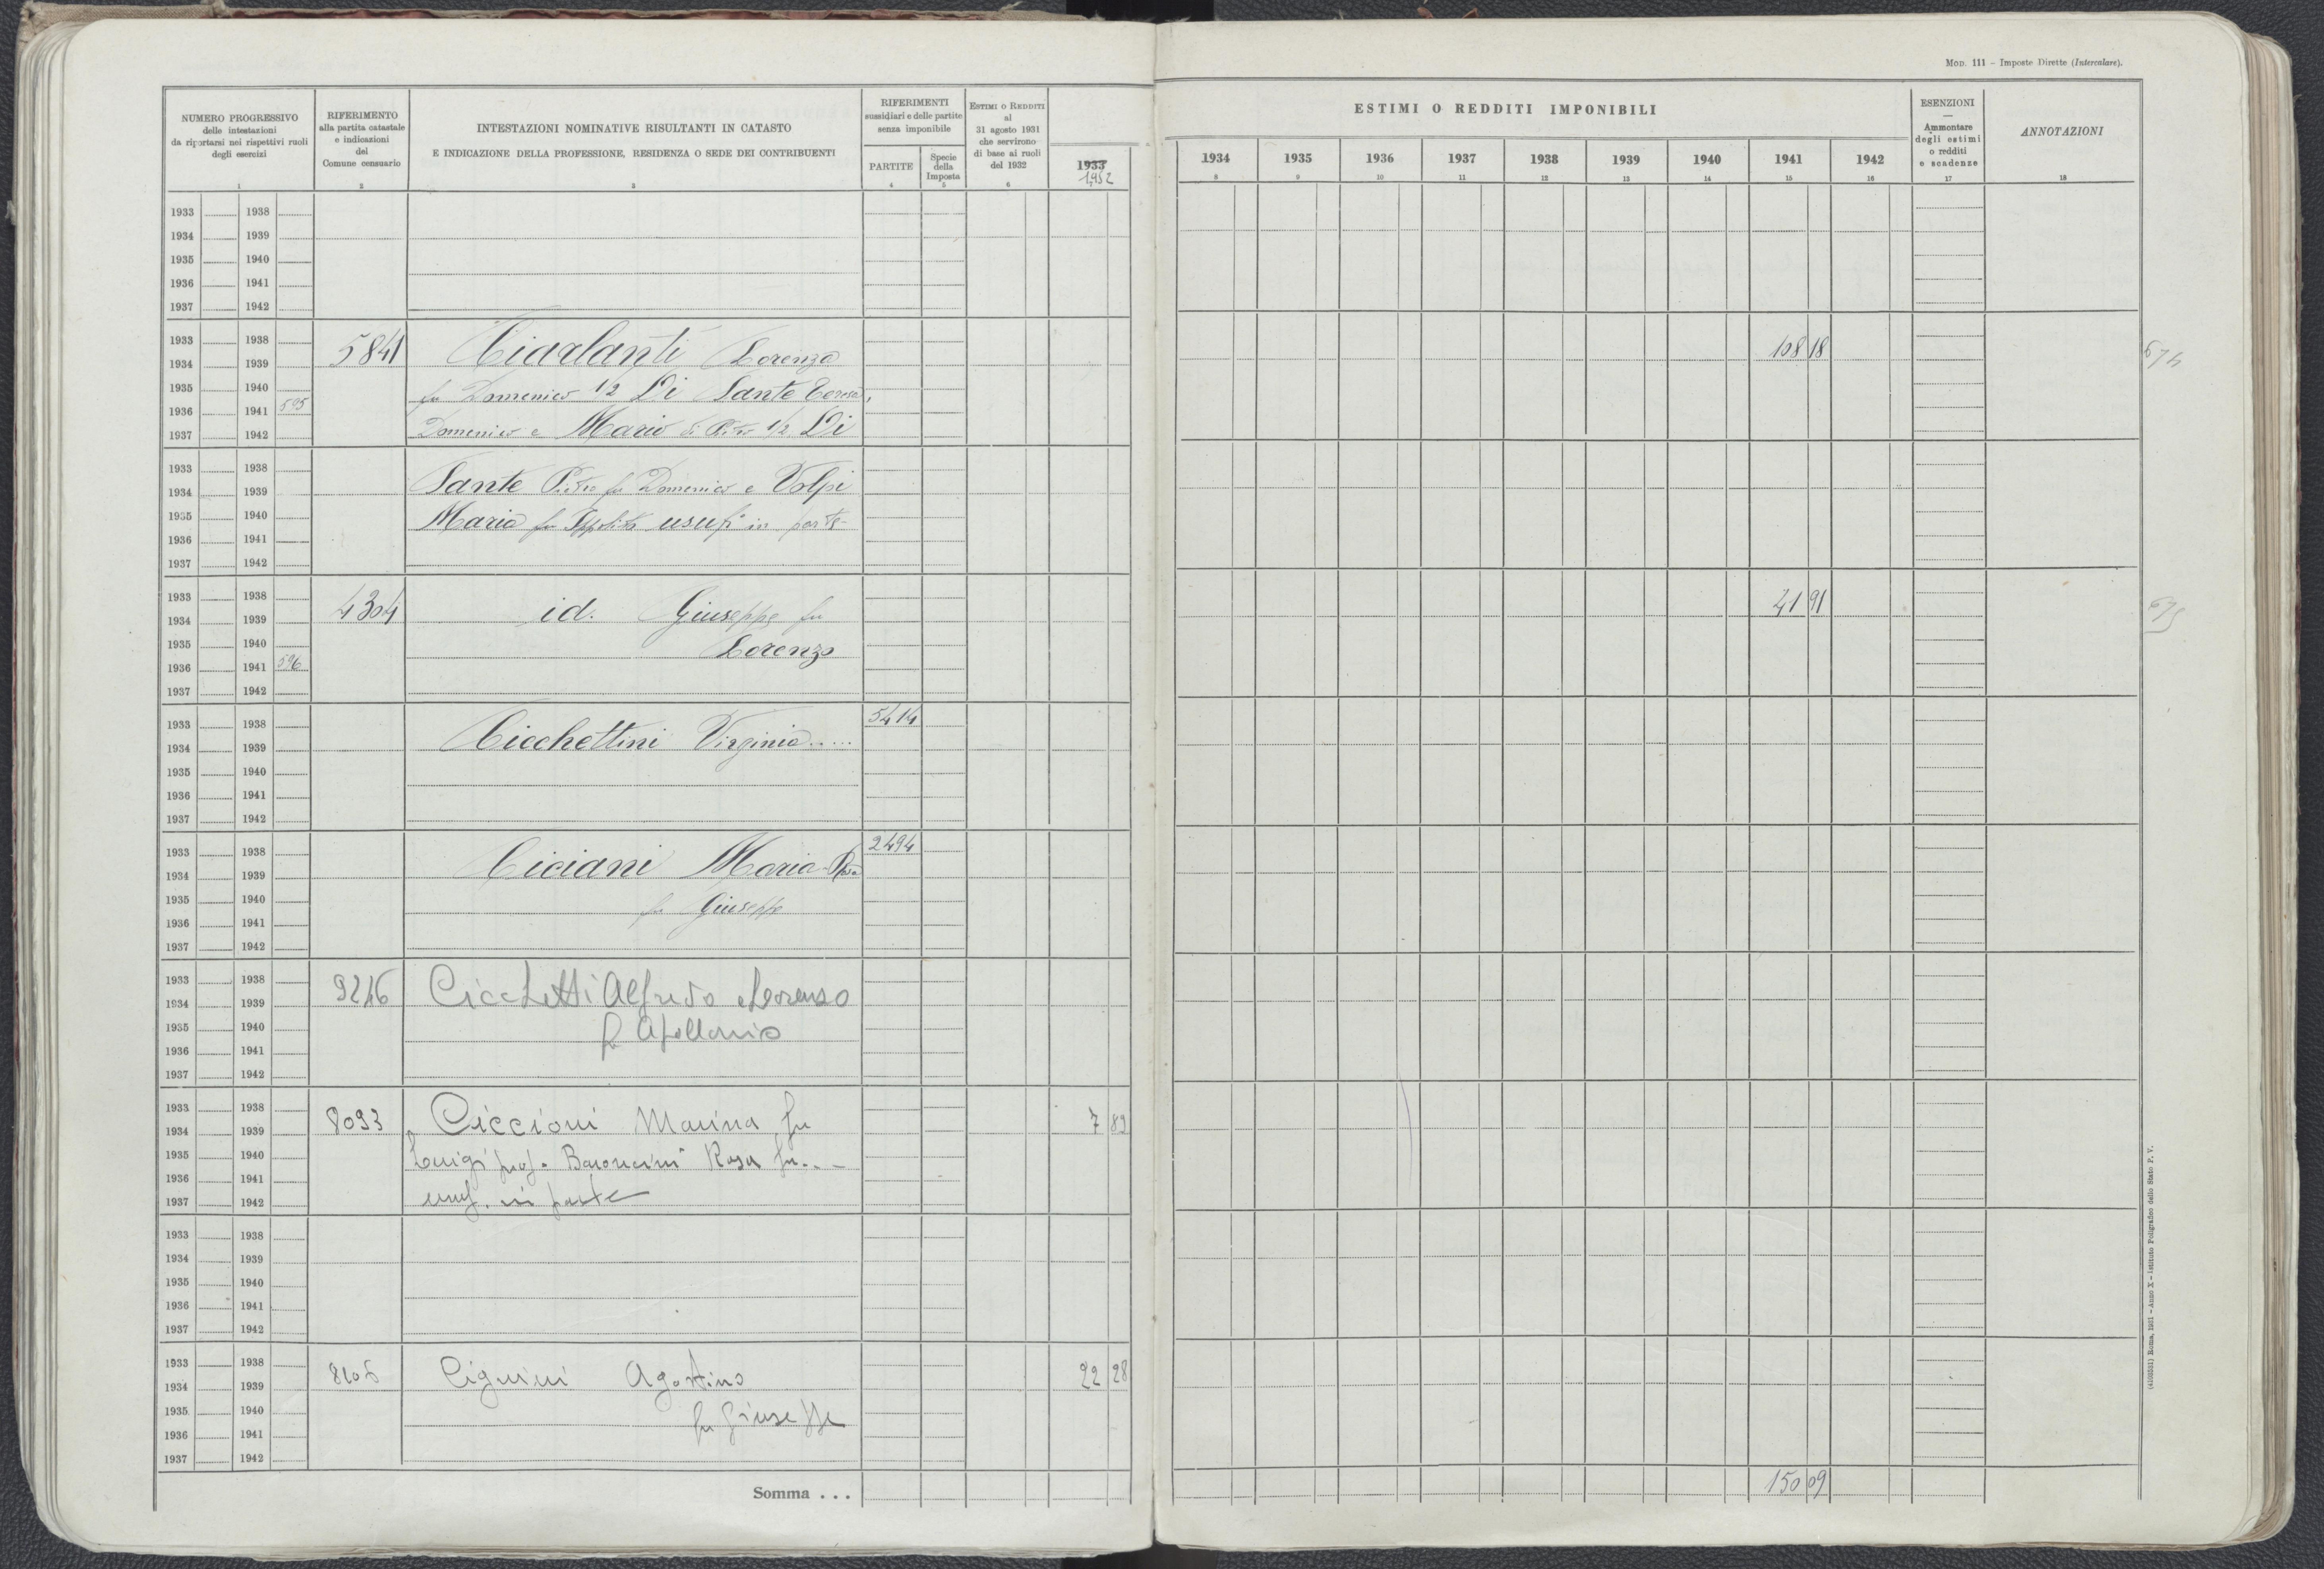 MOD. 111 - Imposte Dirette (Intercalare).
NUMERO PROGRESSIVO
delle intestazioni
da riportarsi nei rispettivi ruoli
degli esercizi
1
RIFERIMENTO
alla partita catastale
e indicazioni
del
Comune censuario
2
INTESTAZIONI NOMINATIVE RISULTANTI IN CATASTO
E INDICAZIONE DELLA PROFESSIONE, RESIDENZA O SEDE DEI CONTRIBUENTI
3
RIFERIMENTI
sussidiari e delle partite
senza imponibile
PARTITE
4
Specie
della
Imposta
5
ESTIMI O REDDITI
al
31 agosto 1931
che servirono
di base ai ruoli
del 1932
6
1933
1952
ESTIMI O REDDITI IMPONIBILI
1934 1935 1936 1937 1938 1939 1940 1941 1942
8 9 10 11 12 13 14 15 16
ESENZIONI
—
Ammontare
degli estimi
o redditi
e scadenze
17
ANNOTAZIONI
18
1933 1938
1934 1939
1935 1940
1936 1941
1937 1942
1933 1938
1934 1939 5841 Ciarlanti Lorenzo 108 18 674
1935 1940 fu Domenico 1/2 Di Sante Teresa,
1936 1941 595
1937 1942 Domenico e Mario di Pietro 1/2 Di
1933 1938
1934 1939 Sante Pietro fu Domenico e Volpi
1935 1940 Maria fu Ippolito usuf. in parte
1936 1941
1937 1942
1933 1938
1934 1939 4304 id. Giuseppe fu 41 91 675
1935 1940 Lorenzo
1936 1941 596
1937 1942
1933 1938 5414
1934 1939 Cicchettini Virginia.....
1935 1940
1936 1941
1937 1942
1933 1938 2494
1934 1939 Ciciani Maria-Rosa
1935 1940 fu Giuseppe
1936 1941
1937 1942
1933 1938
1934 1939 9246 Cicchetti Alfredo e Lorenzo
1935 1940 fu Apollonio
1936 1941
1937 1942
1933 1938
1934 1939 8093 Ciccioni Marina fu 7 89
1935 1940 Luigi prop. Baroncini Rosa fu..-
1936 1941
1937 1942 usuf. in parte
1933 1938
1934 1939
1935 1940
1936 1941
1937 1942
1933 1938
1934 1939 Cignini Agostino 22 28
1935 1940 fu Giuseppe
1936 1941
1937 1942
Somma . . . 150 09
(4103551) Roma, 1931 - Anno X - Istituto Poligrafico dello Stato P. V.